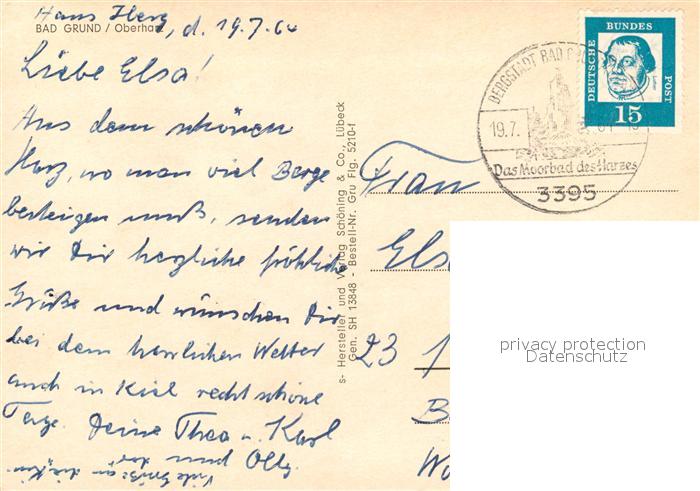 Hans Iberg, d. 19.7.64
BAD GRUND / Oberharz
Liebe Elsa!
Aus dem schönen
Harz, wo man viel Berge
besteigen muß, senden
wir Dir herzliche fröhliche
Grüße und wünschen Dir
bei dem herrlichen Wetter
auch in Kiel recht schöne
Tage. Deine Thea u. Karl
und Olly
Viele Grüße an
s- Hersteller und Verlag Schöning & Co., Lübeck
Gen. SH 13848 - Bestell-Nr. Gru Flg. 5210-f
BERGSTADT BAD
19.7.
Das Moorbad des Harzes
3395
DEUTSCHE BUNDES POST
15
Frau
Els
23 1
B
Wo
privacy protection
Datenschutz